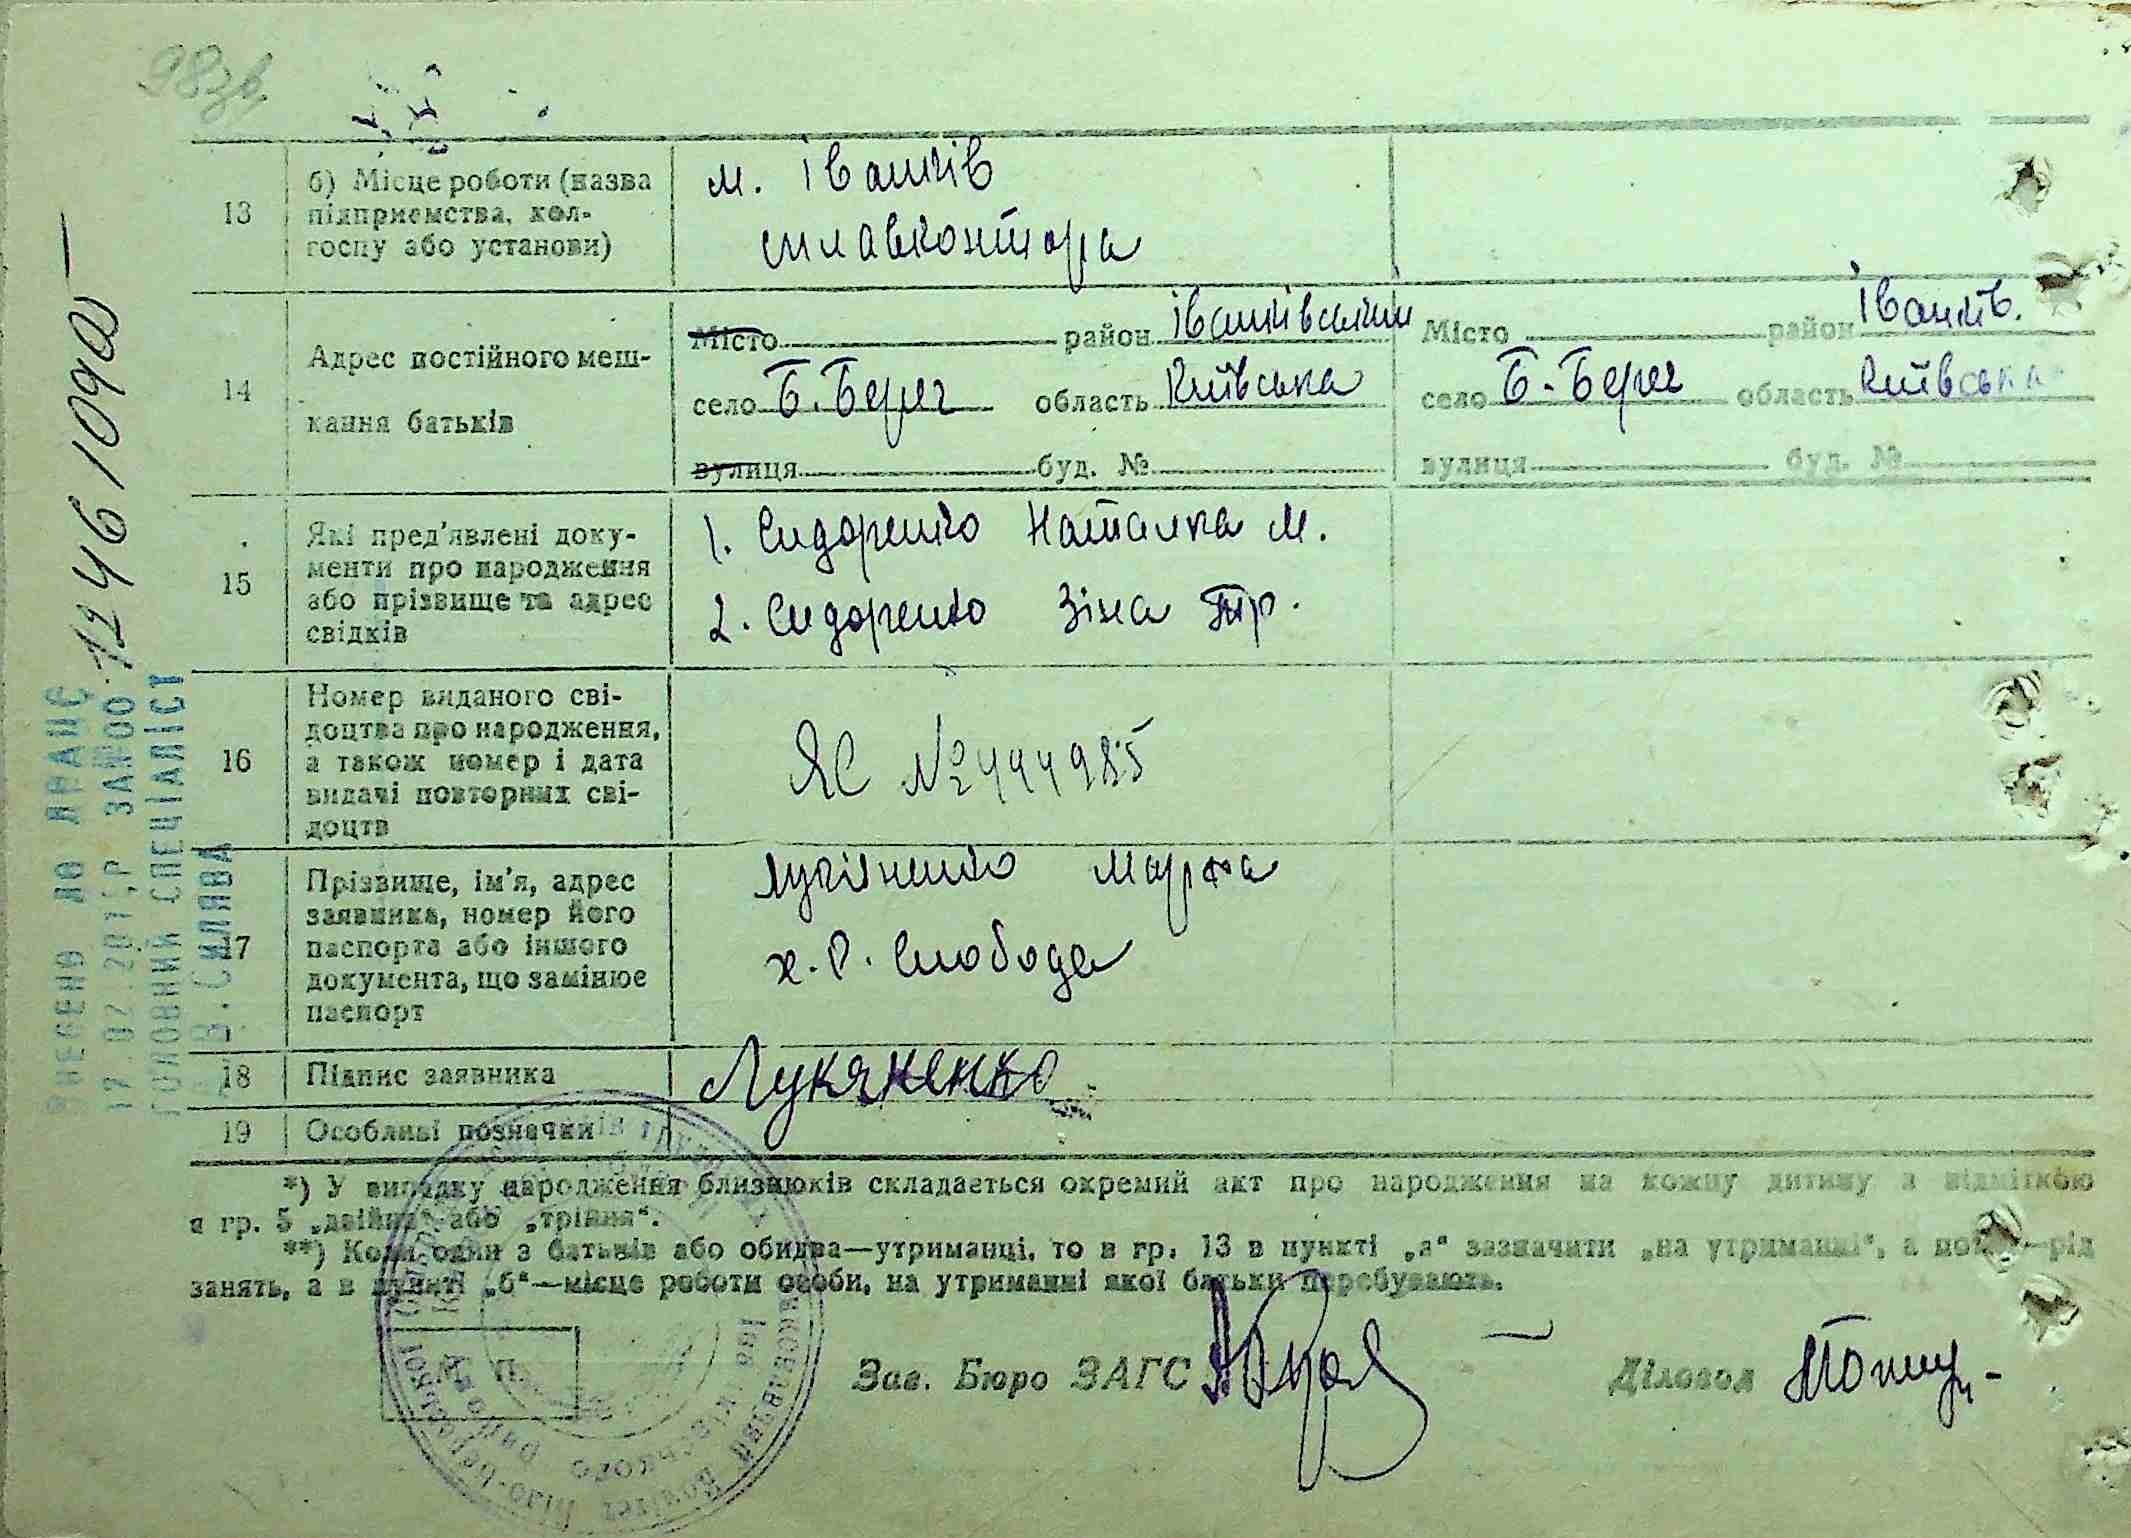 98зв.
13
б) Місце роботи (назва
підприємства, кол-
госпу або установи)
м. Іванків
сплавконтора
14
Адрес постійного меш-
кання батьків
Місто район Іванківський
село Б. Берег область Київська
вулиця буд. №
Місто район Іванків.
село Б. Берег область Київська
вулиця буд. №
15
Які пред'явлені доку-
менти про народження
або прізвище та адрес
свідків
1. Сидоренко Наталка М.
2. Сидоренко Зіна Тр.
16
Номер виданого сві-
доцтва про народження,
а також номер і дата
видачі повторних сві-
доцтв
ЯС № 444985
17
Прізвище, ім'я, адрес
заявника, номер його
паспорта або іншого
документа, що замінює
паспорт
Лук'яненко Марта
х. Р. Слобода
18
Підпис заявника
Лукяненко
19
Особливі позначки
*) У випадку народження близнюків складається окремий акт про народження на кожну дитину з відміткою
в гр. 5 „двійня“ або „трійня“.
**) Коли один з батьків або обидва—утриманці, то в гр. 13 в пункті „а“ зазначити „на утриманні“, а нобто—рід
занять, а в пункті „б“—місце роботи особи, на утриманні якої батьки перебувають.
М. П.
Зав. Бюро ЗАГС
Діловод
ВНЕСЕНО ДО ДРАЦС
17.02.2015Р ЗА№00 1246109 0
ГОЛОВНИЙ СПЕЦІАЛІСТ
В.СИЛЯВА